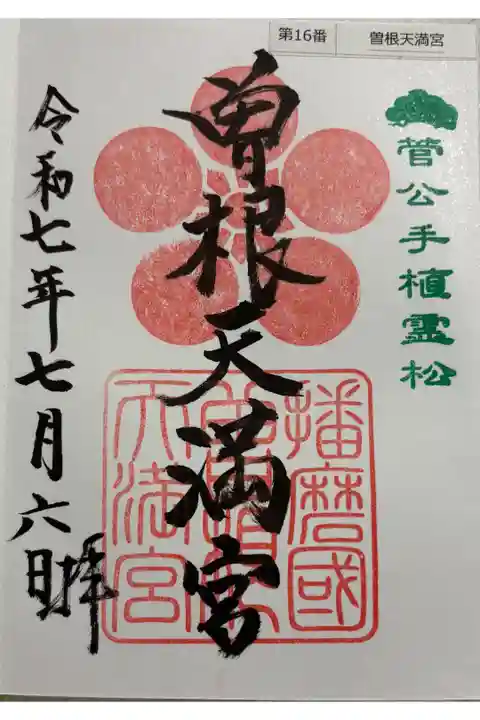 第16番 曽根天満宮
菅公手植霊松
曽根天満宮
播磨國
天満宮
令和七年七月六日拝